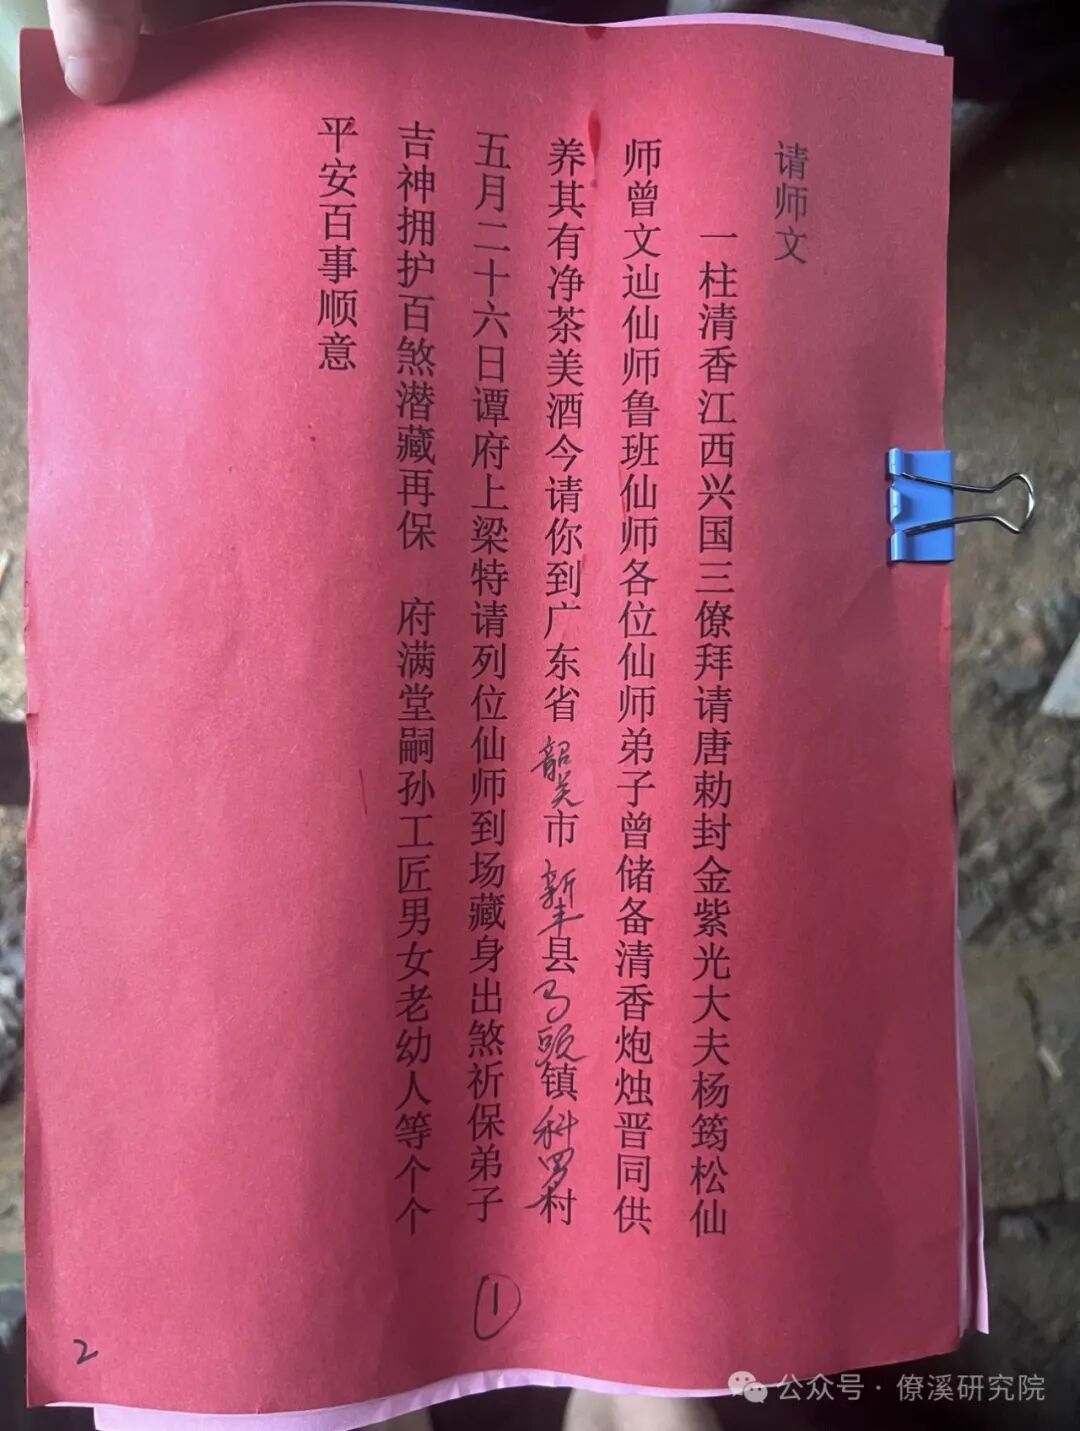 请师文
一柱清香江西兴国三僚拜请唐勅封金紫光大夫杨筠松仙
师曾文辿仙师鲁班仙师各位仙师弟子曾储备清香炮烛晋同供
养其有净茶美酒今请你到广东省韶关市新丰县马头镇科罗村
五月二十六日谭府上梁特请列位仙师到场藏身出煞祈保弟子
吉神拥护百煞潜藏再保 府满堂嗣孙工匠男女老幼人等个个
平安百事顺意
①
2
公众号·僚溪研究院